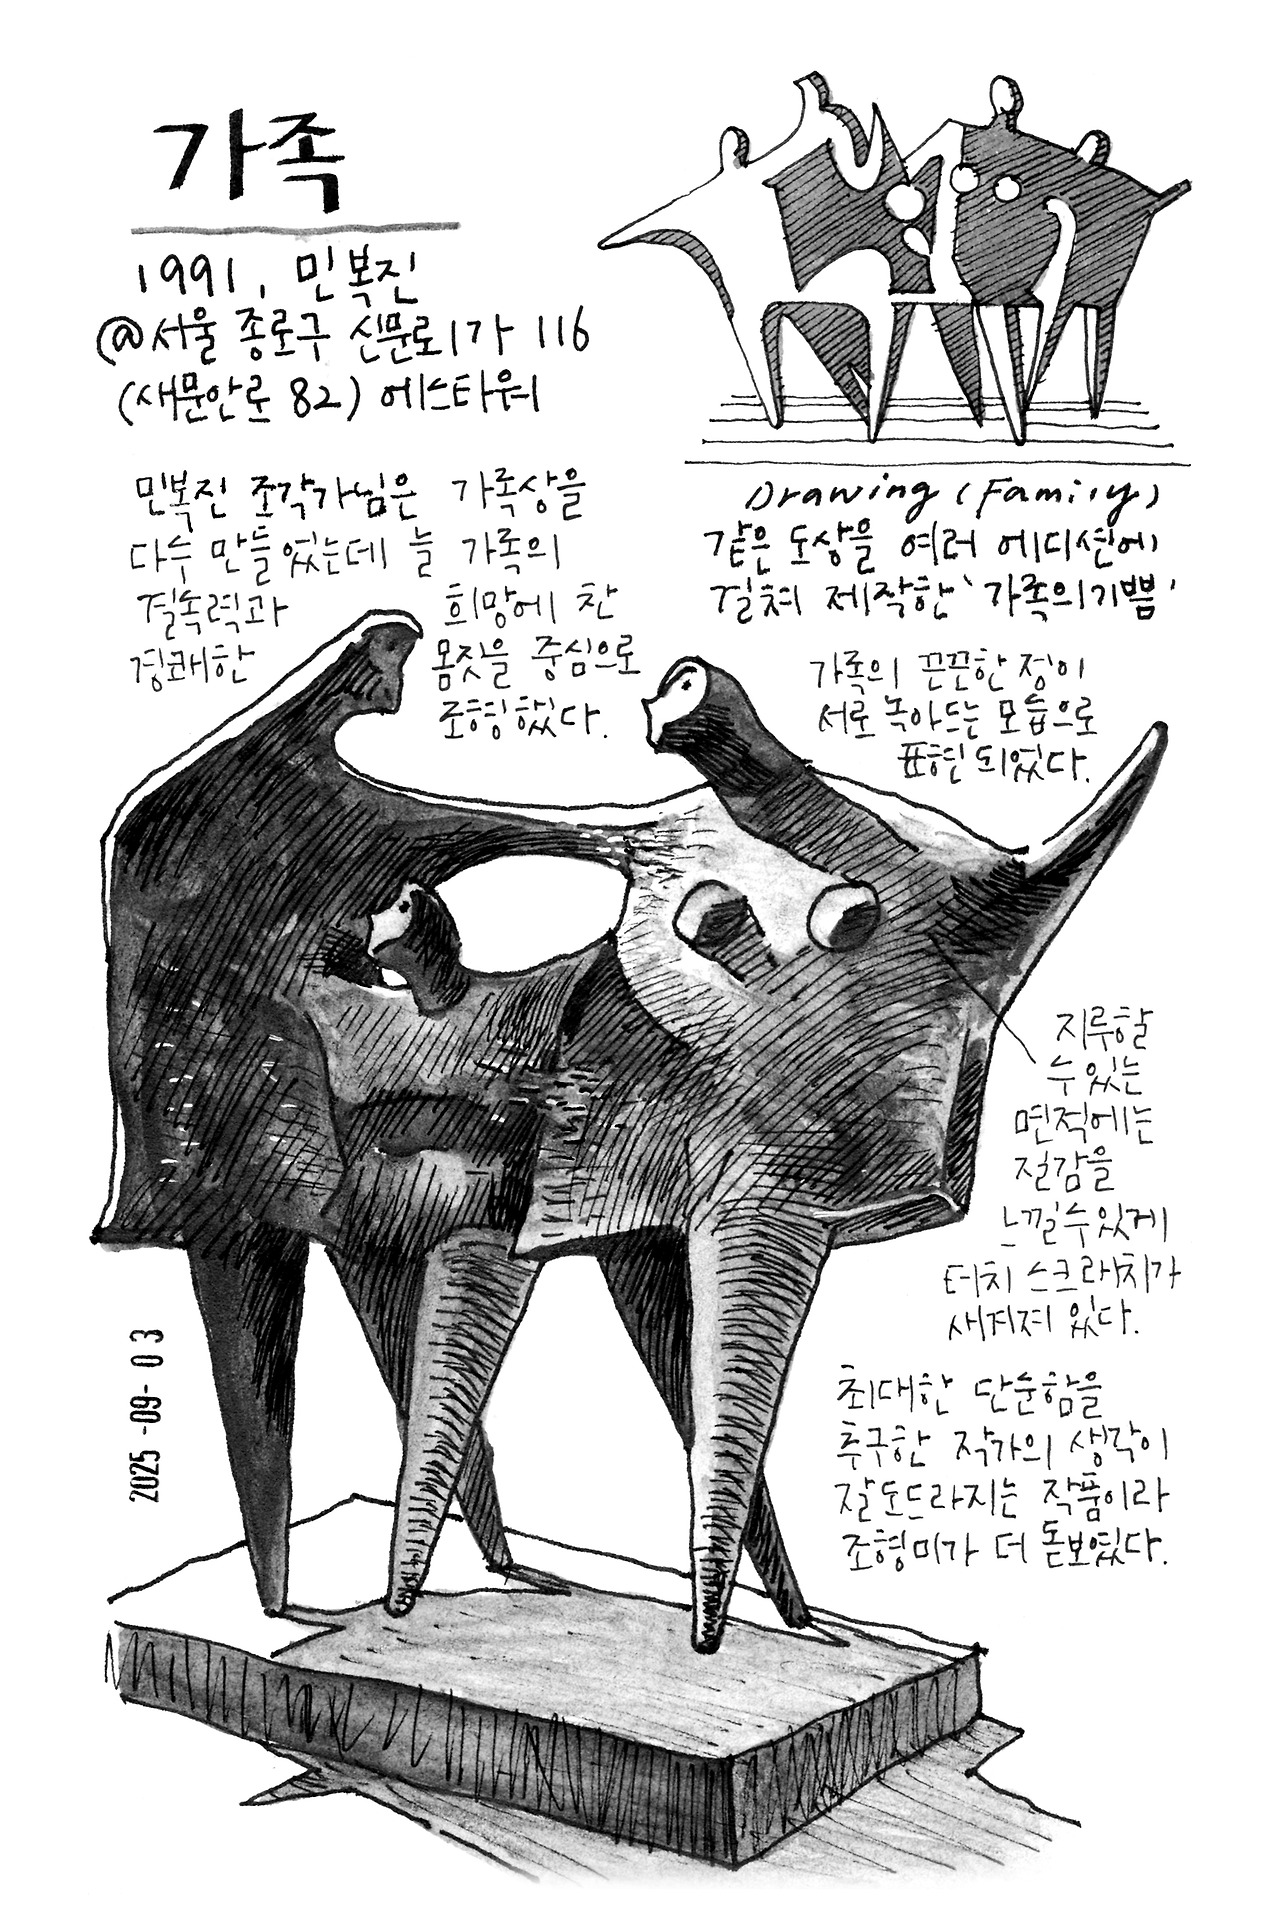 가족
1991, 민복진
@서울 종로구 신문로1가 116
(새문안로 82) 에스타워
민복진 조각가님은 가족상을
다수 만들었는데 늘 가족의
결속력과 희망에 찬
경쾌한 몸짓을 중심으로
조형했다.
Drawing (Family)
같은 도상을 여러 에디션에
걸쳐 제작한 '가족의기쁨'
가족의 끈끈한 정이
서로 녹아드는 모습으로
표현되었다.
지루할
수 있는
면적에는
질감을
느낄수있게
터치 스크래치가
새겨져 있다.
최대한 단순함을
추구한 작가의 생각이
잘 도드라지는 작품이라
조형미가 더 돋보였다.
2025 -09- 03